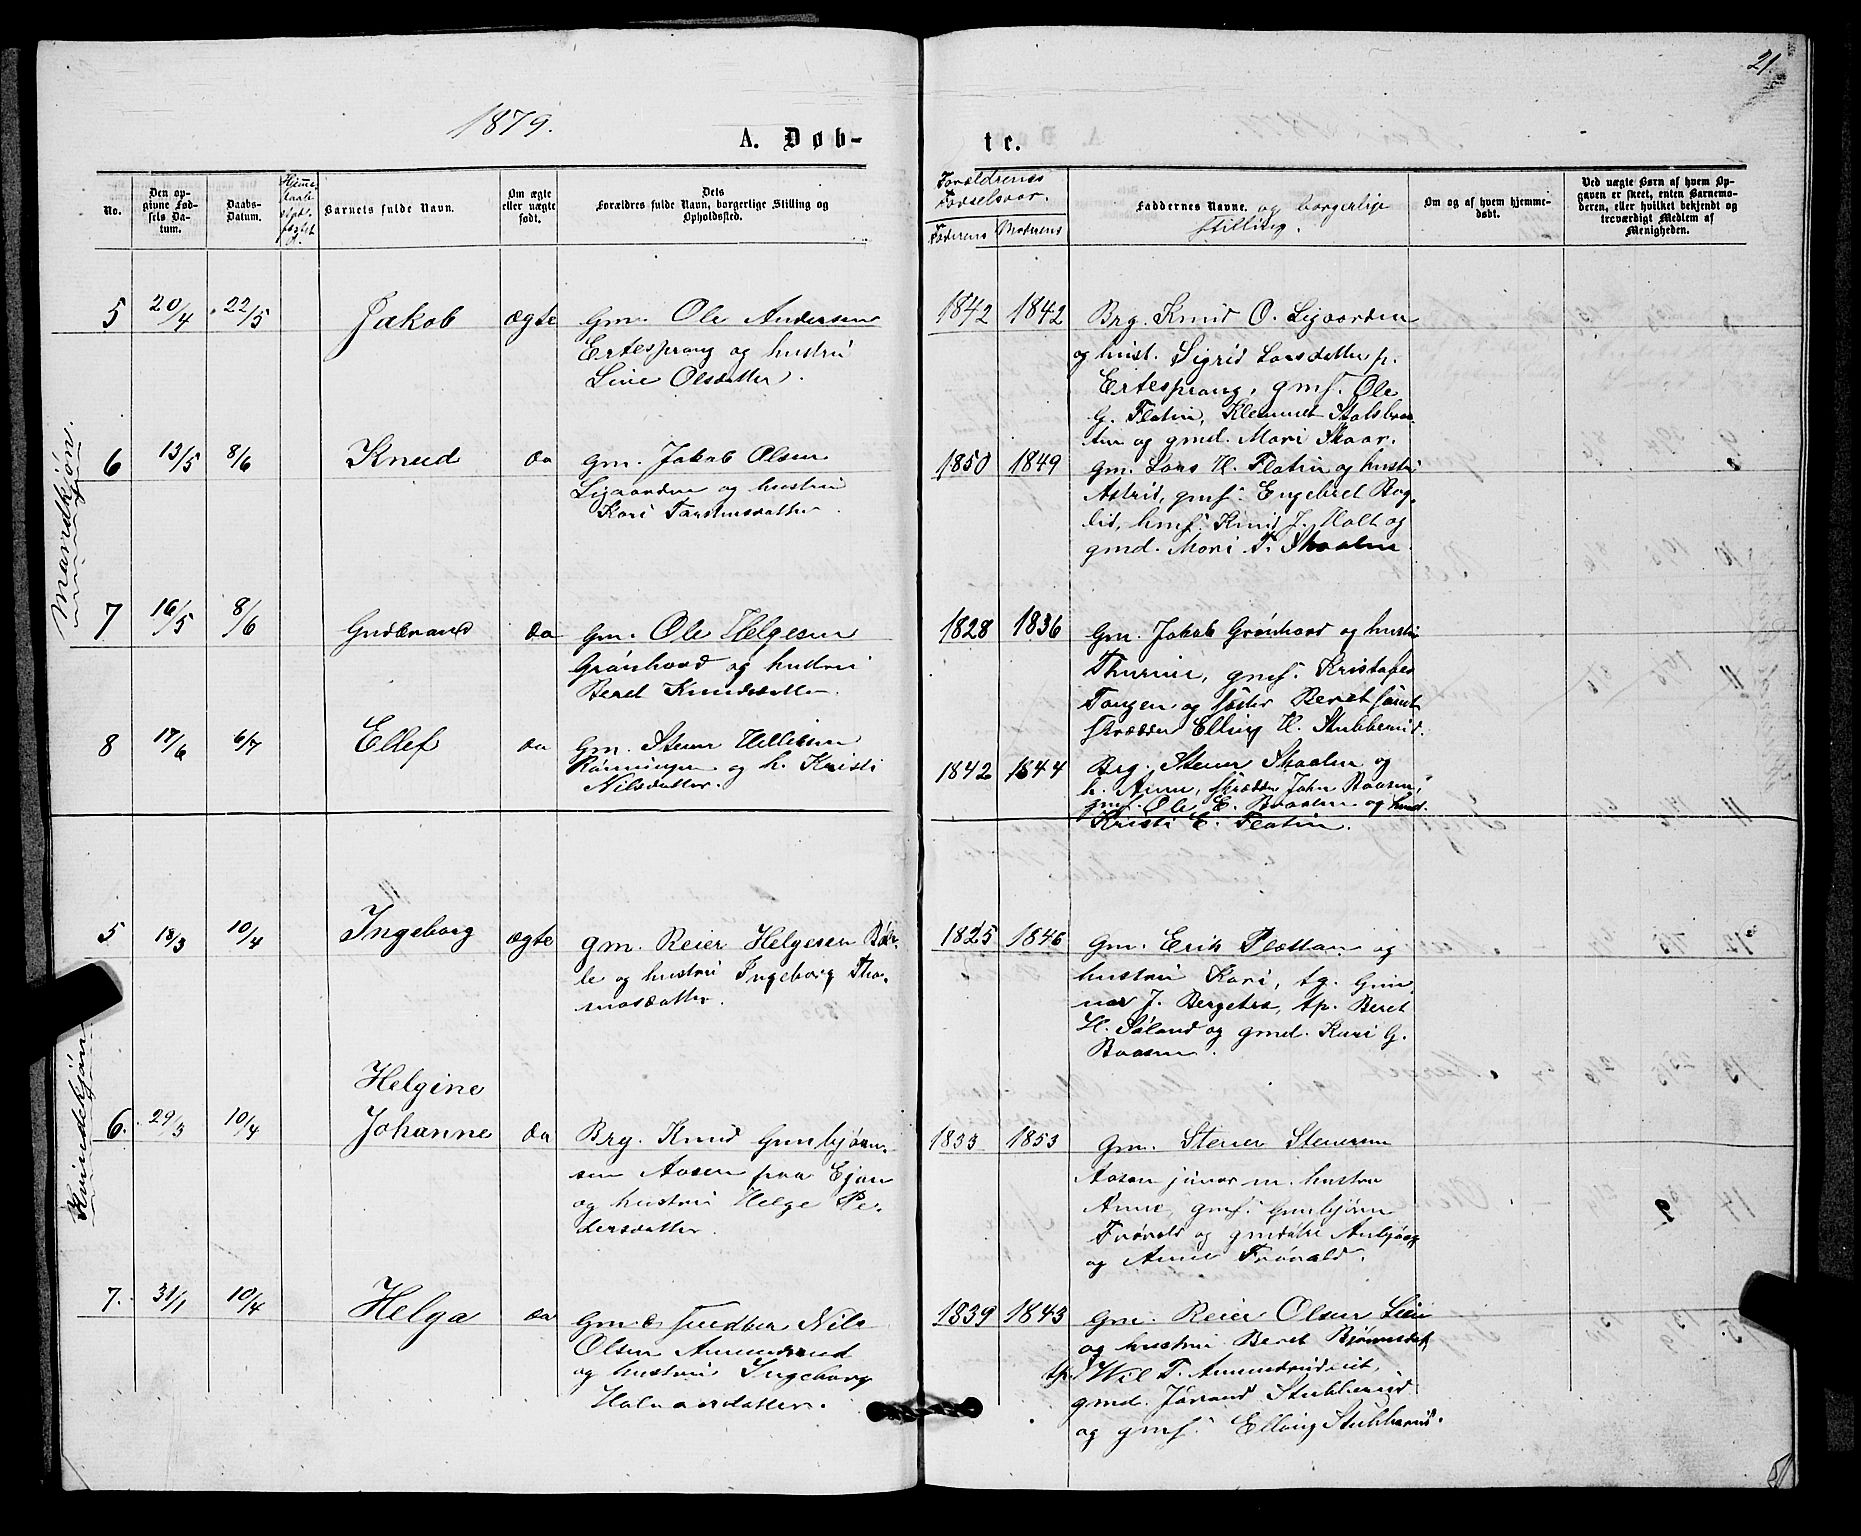 21.
1879.
A. Døb-
te.
No.
Den op-
givne Fød-
sels Da-
tum.
Daabs-
Datum.
Barnets fulde Navn.
Om ægte
eller uægte
født.
Dets
Forældres fulde Navn, borgerlige Stilling og
Opholdssted.
Forældrenes
Fødselsaar.
Faderens
Moderens
Faddernes Navne. og borgerlige
Stilling.
Om og af hvem hjemme-
døbt.
Ved uægte Børn af hvem Op-
gaven er skeet, enten Barnemo-
deren, eller hvilket bekjendt og
troværdigt Medlem af
Menigheden.
Mandkjøn.
5 20/4 22/5 Jakob ægte Gm. Ole Andersen
Ertesprang og hustru
Live Olsdatter.
1842 1842 Brg. Knud O. Ligaarden
og hust. Sigrid Larsdatter p.
Ertesprang, gmf. Ole
G. Flatin, Klemmet
og gmd. Mari Skaar.
6 13/5 8/6 Knud do Gm. Jakob Olsen
Ligaarden og hustru
Kari Torstensdatter.
1850 1849 Gm. Lars H. Flatin og hustru
Astrid, gmf. Engebret Bag-
lid, hmf. Knud J. Holt og
gmd. Mari T. Skaalen
7 16/5 8/6 Gudbrand do Gm. Ole Helgesen
Grønhovd og hustru
Beret Knudsdatter.
1828 1836 Gm. Jakob Grønhovd og hustru
Thurine, gmf. Kristofer
Tangen og søster Beret samt
skrædder Elling H. Stubberud.
8 17/6 6/7 Ellef do Gm. Stener Helliksen
Rønningen og h. Kristi
Nilsdatter.
1842 1844 Brg. Stener Skaalen og
h. Anne, skrædder John Baasen,
gmf. Ole E. Braaten og
Kristi E. Flatin.
Kvindekjøn.
5 18/3 10/4 Ingeborg ægte gm. Reier Helgesen
og hustru Ingeborg Tho-
masdatter.
1825 1846 Gm. Erik Plattan og
hustru Kari, tg. Gun-
nar J. Bergetra, tp. Beret
H. Søland og gmd. Kari G.
Baasen.
6. 29/3 10/4 Helgine
Johanne do Brg. Knud Gunbjørn-
sen Aasen paa Ejen
og hustru Helge Pe-
dersdatter.
1853 1853 Gm. Stener Stenersen
Aasen junior m. hustru
Anne, gmf. Gunbjørn
Frøvold og gmdøtre Anbjørg
og Anne Frøvold.
7. 31/1 10/4 Helga do Gm. Nils
Olsen Amundrud
og hustru Ingeborg
Halvorsdatter.
1839 1843 Gm. Reier Olsen Lein
og hustru Beret Bjørnsdat.
tp. T. Amundrudeiet,
gmd. Jørand Stubberud
og gmf. Elling Stubberud.